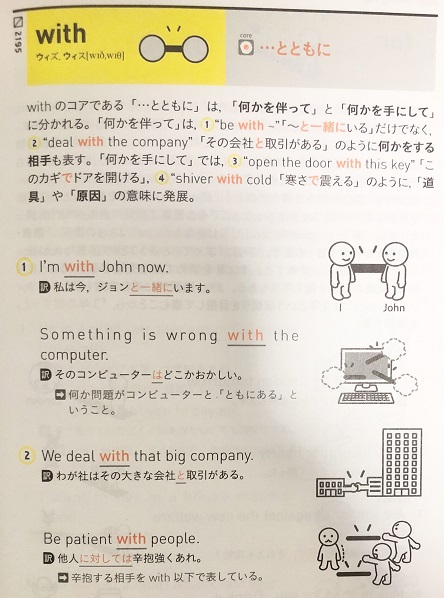 2195
with
ウィズ, ウィス[wɪð,wɪθ]
core
…とともに
with のコアである「…とともに」は、「何かを伴って」と「何かを手にして」
に分かれる。「何かを伴って」は、① “be with ~”「〜と一緒にいる」だけでなく、
② “deal with the company”「その会社と取引がある」のように何かをする
相手も表す。「何かを手にして」では、③ “open the door with this key”「こ
のカギでドアを開ける」、④ “shiver with cold「寒さで震える」のように、「道
具」や「原因」の意味に発展。
① I’m with John now.
訳 私は今，ジョンと一緒にいます。
I John
Something is wrong with the
computer.
訳 そのコンピューターはどこかおかしい。
➡ 何か問題がコンピューターと「ともにある」と
いうこと。
② We deal with that big company.
訳 わが社はその大きな会社と取引がある。
Be patient with people.
訳 他人に対しては辛抱強くあれ。
➡ 辛抱する相手を with 以下で表している。